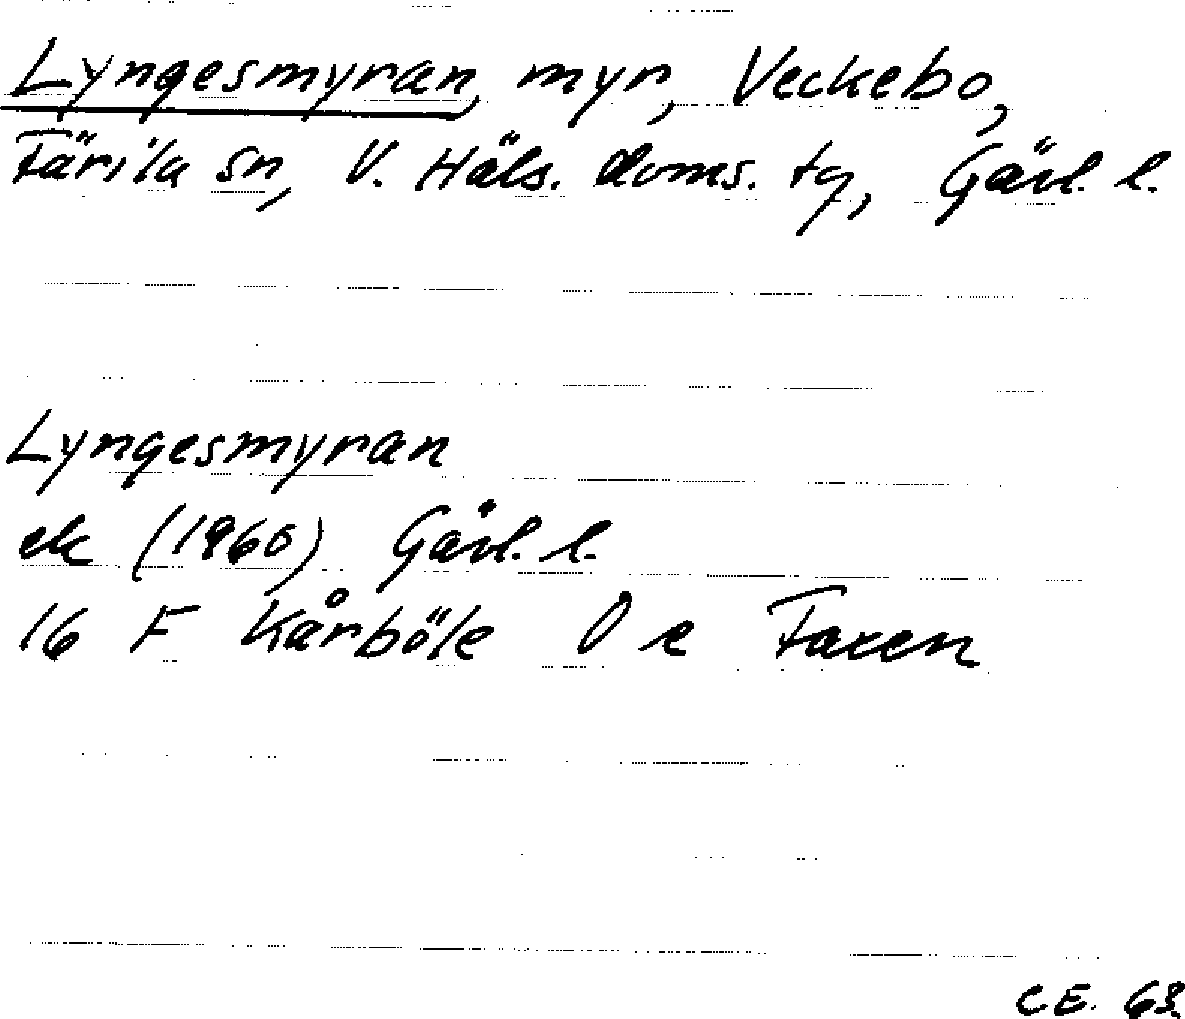 Lyngesmyran, myr, Veckebo,
Färila sn, V. Häls. doms. tg, Gävl. l.
Lyngesmyran
ek (1960) Gävl. l.
16 F Kårböle 0 e Faxen
C E. 63.